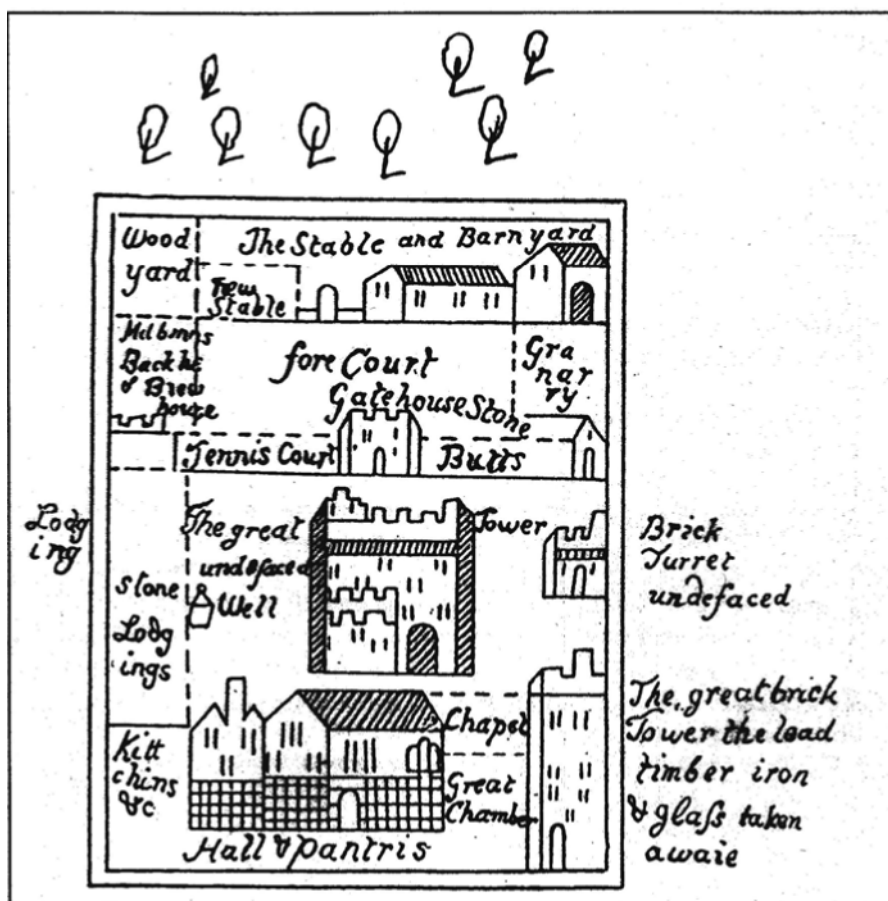 Wood
yard
The Stable and Barnyard
New
Stable
Backhs
& Brew
house
fore Court
Gra
nar
ry
Gatehouse Stone
Tennis Court
Butts
Lodg
ing
The great
undefaced
Tower
Well
stone
Lodg
ings
Brick
Turret
undefaced
Kitt
chins
&c
Chapel
Great
Chamber
Hall & pantris
The great brick
Tower the lead
timber iron
& glaſs taken
awaie